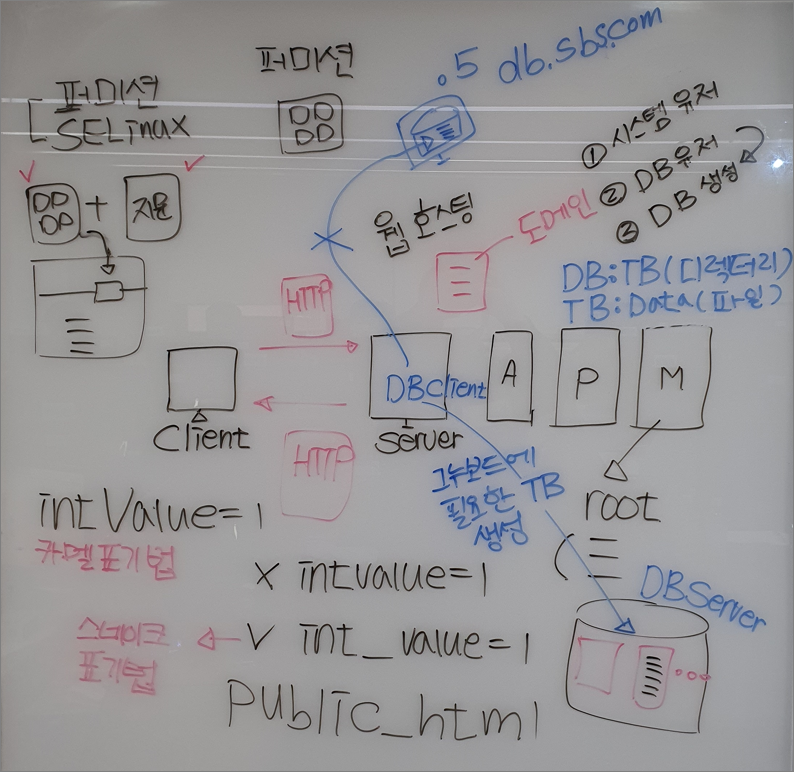 퍼미션
.5 db.sbs.com
퍼미션
SELinux
① 시스템 유저
② DB유저
③ DB 생성
+
웹 호스팅
도메인
DB:TB(디렉터리)
TB:Data(파일)
HTTP
DBClient
A
P
M
Client
Server
HTTP
그누보드에
필요한 TB
생성
root
intValue=1
카멜표기법
x intvalue=1
DBServer
스네이크
표기법
v int_value=1
public_html